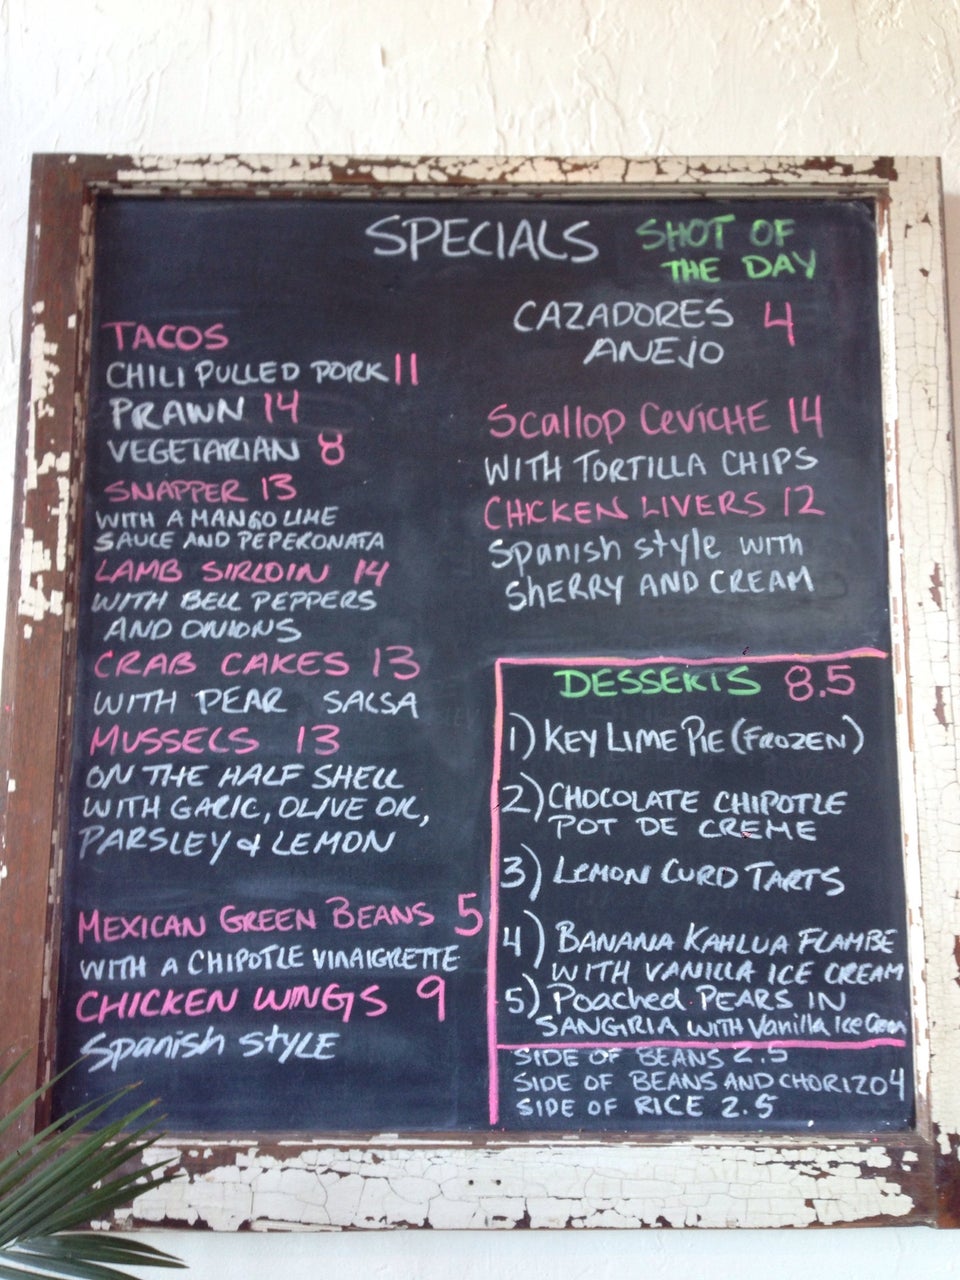 SPECIALS
SHOT OF
THE DAY
CAZADORES 4
ANEJO
TACOS
CHILI PULLED PORK 11
PRAWN 14
VEGETARIAN 8
SNAPPER 13
WITH A MANGO LIME
SAUCE AND PEPERONATA
LAMB SIRLOIN 14
WITH BELL PEPPERS
AND ONIONS
CRAB CAKES 13
WITH PEAR SALSA
MUSSELS 13
ON THE HALF SHELL
WITH GALIC, OLIVE OIL,
PARSLEY & LEMON
MEXICAN GREEN BEANS 5
WITH A CHIPOTLE VINAIGRETTE
CHICKEN WINGS 9
Spanish STYLE
Scallop CEVICHE 14
WITH TORTILLA CHIPS
CHICKEN LIVERS 12
Spanish style WITH
SHERRY AND CREAM
DESSERTS 8.5
1) KEY LIME PIE (FROZEN)
2) CHOCOLATE CHIPOTLE
POT DE CREME
3) LEMON CURD TARTS
4) BANANA KAHLUA FLAMBE
WITH VANILLA ICE CREAM
5) Poached PEARS IN
SANGRIA WITH Vanilla Ice Cream
SIDE OF BEANS 2.5
SIDE OF BEANS AND CHORIZO 4
SIDE OF RICE 2.5